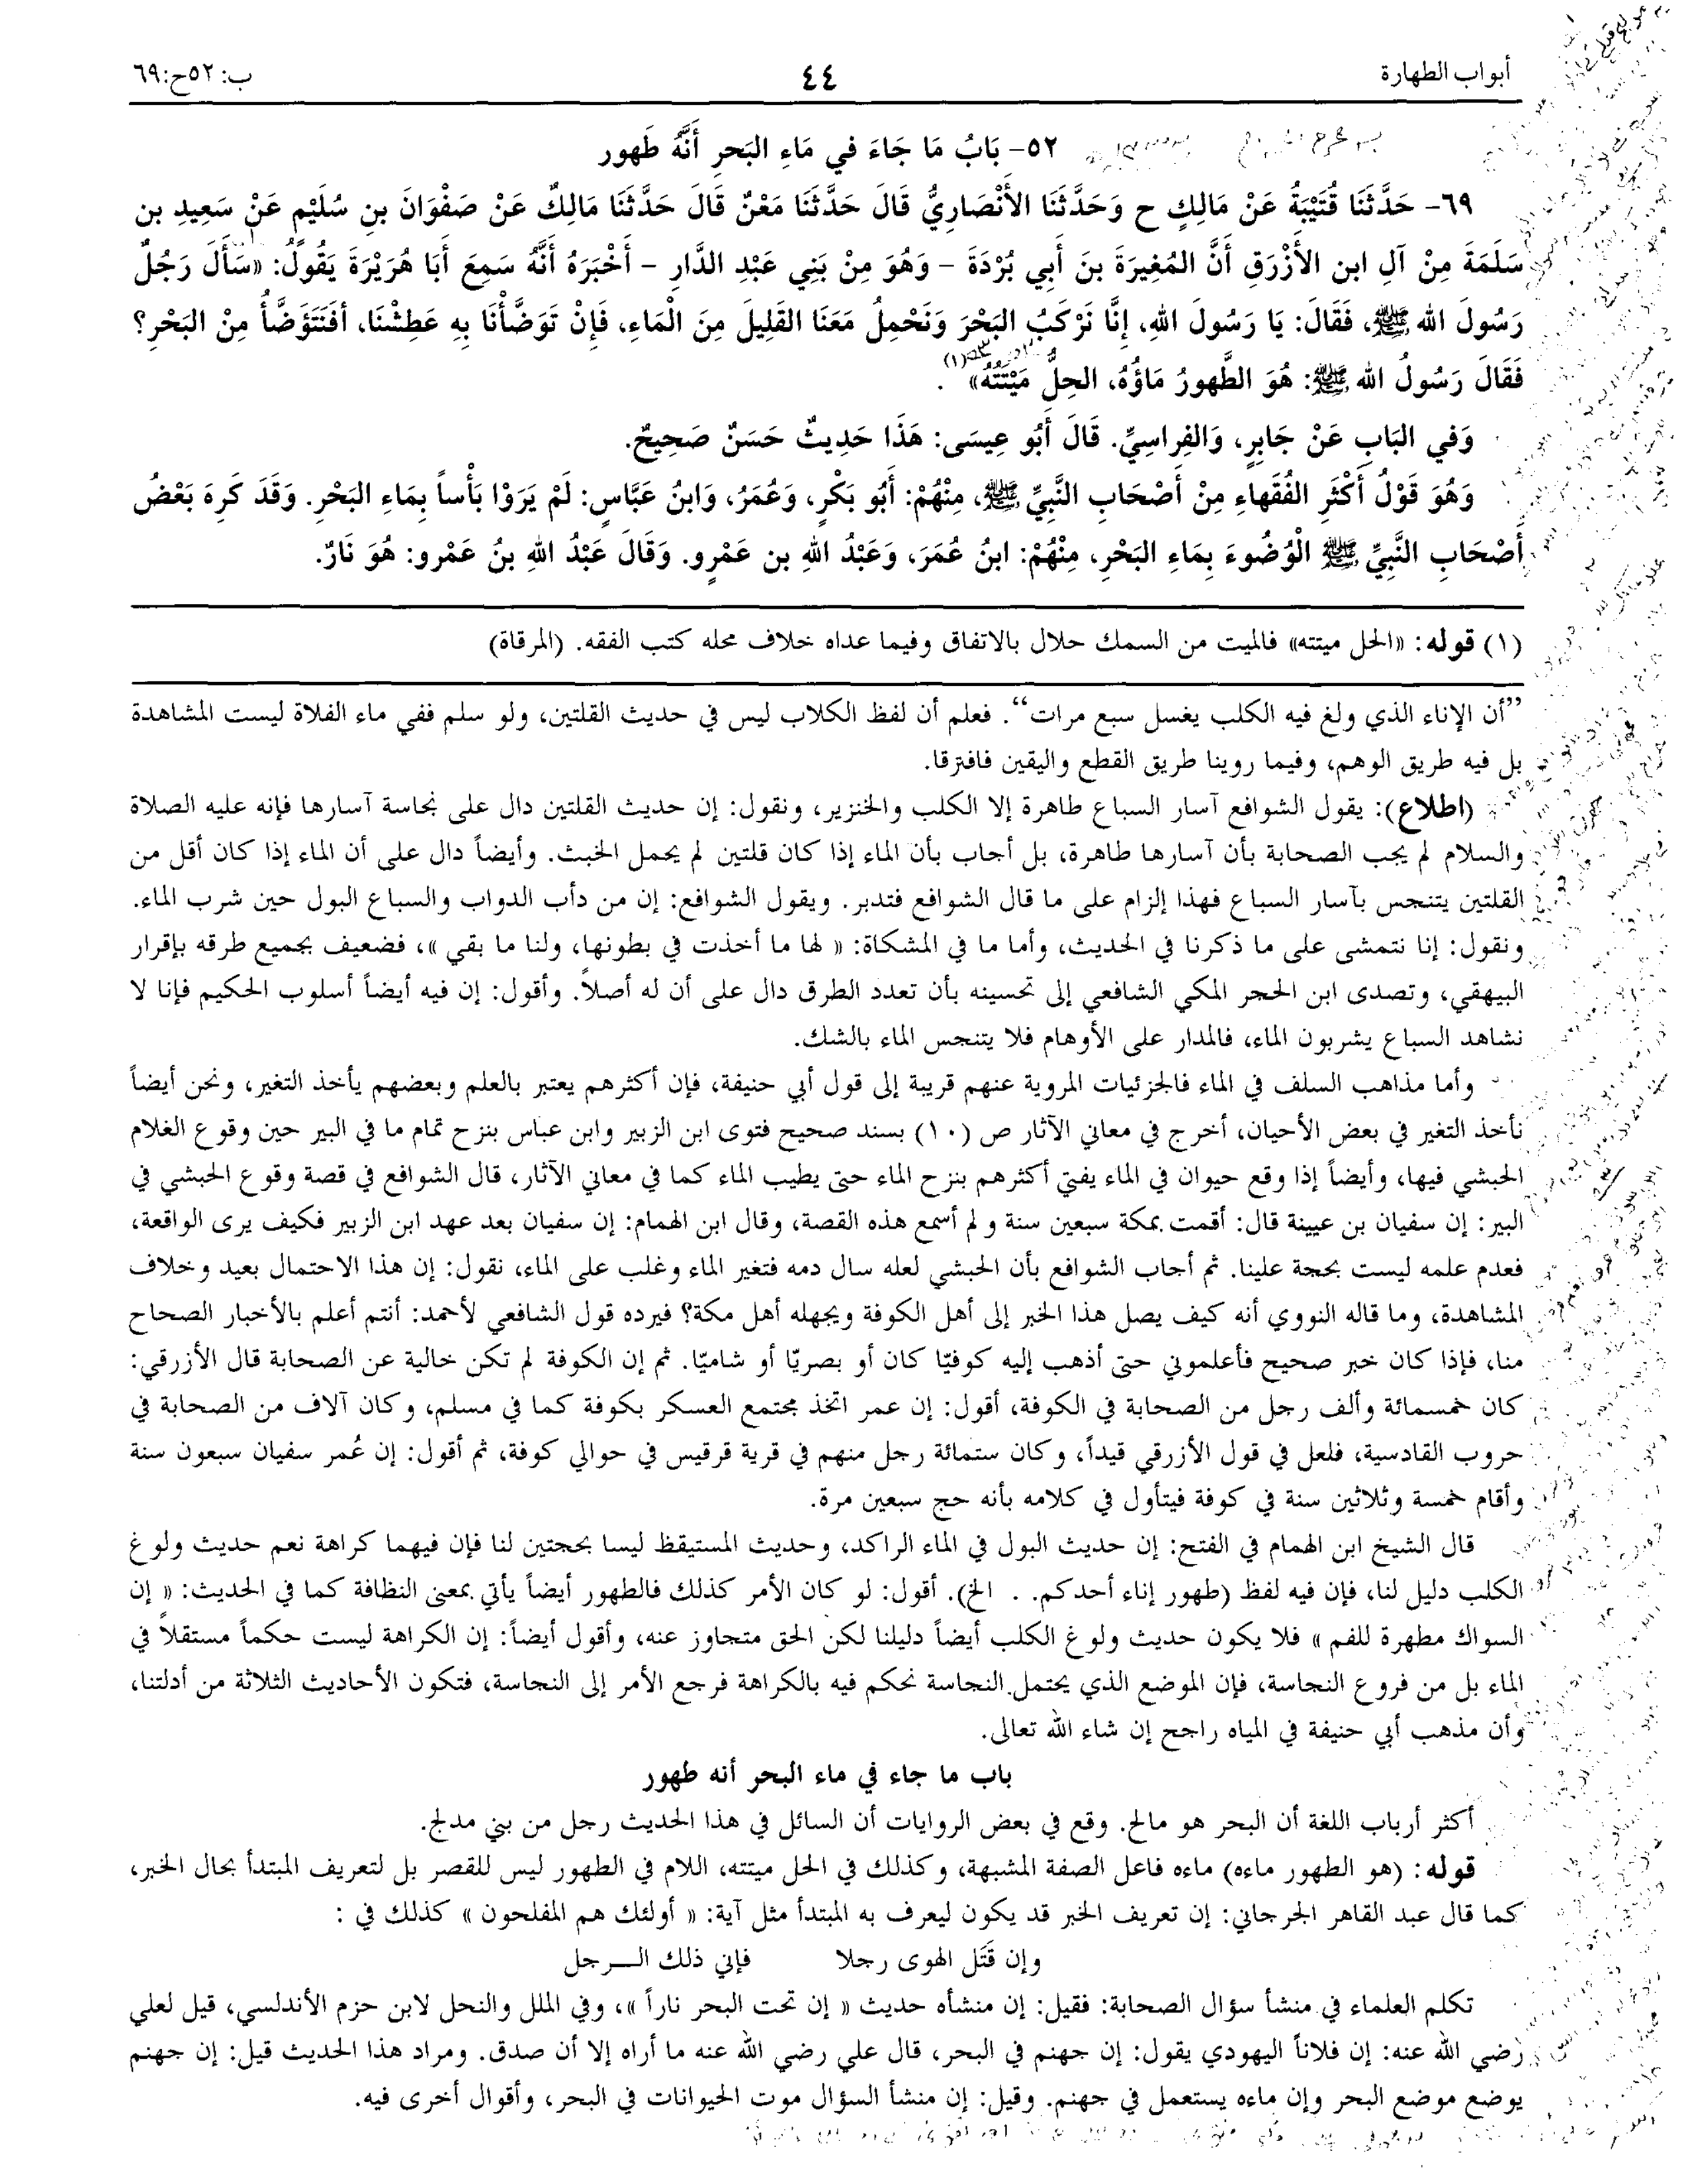 أبواب الطهارة
٤٤
ب: ٥٢ح:٦٩
٥٢- بَابُ مَا جَاءَ في مَاءِ البَحرِ أَنَّهُ طَهور
٦٩- حَدَّثَنَا قُتَيْبَةُ عَنْ مَالِكٍ ح وَحَدَّثَنَا الأَنْصَارِيُّ قَالَ حَدَّثَنَا مَعْنٌ قَالَ حَدَّثَنَا مَالِكٌ عَنْ صَفْوَانَ بنِ سُلَيْمٍ عَنْ سَعِيدِ بن
سَلَمَةَ مِنْ آلِ ابن الأَزْرَقِ أَنَّ المُغِيرَةَ بنَ أَبِي بُرْدَةَ - وَهُوَ مِنْ بَنِي عَبْدِ الدَّارِ - أَخْبَرَهُ أَنَّهُ سَمِعَ أَبَا هُرَيْرَةَ يَقُولُ: «سَأَلَ رَجُلٌ
رَسُولَ الله ﷺ، فَقَالَ: يَا رَسُولَ اللهِ، إِنَّا نَرْكَبُ البَحْرَ وَنَحْمِلُ مَعَنَا القَلِيلَ مِنَ الْمَاءِ، فَإِنْ تَوَضَّأْنَا بِهِ عَطِشْنَا، أفَنَتَوَضَّأُ مِنْ البَحْرِ؟
فَقَالَ رَسُولُ الله ﷺ: هُوَ الطَّهورُ مَاؤُهُ، الحِلُّ مَيْتَتُهُ»(١).
وَفي البَابِ عَنْ جَابِرٍ، وَالفِراسِيِّ. قَالَ أَبُو عِيسَى: هَذَا حَدِيثٌ حَسَنٌ صَحِيحٌ.
وَهُوَ قَوْلُ أَكْثَرِ الفُقَهاءِ مِنْ أَصْحَابِ النَّبِيِّ ﷺ، مِنْهُمْ: أَبُو بَكْرٍ، وَعُمَرُ، وَابنُ عَبَّاسٍ: لَمْ يَرَوْا بَأْساً بِمَاءِ البَحْرِ. وَقَدَ كَرِهَ بَعْضُ
أَصْحَابِ النَّبِيِّ ﷺ الْوُضُوءَ بِمَاءِ البَحْرِ، مِنْهُمْ: ابنُ عُمَرَ، وَعَبْدُ اللهِ بن عَمْرٍو. وَقَالَ عَبْدُ اللهِ بنُ عَمْرو: هُوَ نَارٌ.
(١) قوله: «الحل ميتته» فالميت من السمك حلال بالاتفاق وفيما عداه خلاف محله كتب الفقه. (المرقاة)
”أن الإناء الذي ولغ فيه الكلب يغسل سبع مرات“. فعلم أن لفظ الكلاب ليس في حديث القلتين، ولو سلم ففي ماء الفلاة ليست المشاهدة
بل فيه طريق الوهم، وفيما روينا طريق القطع واليقين فافترقا.
(اطلاع): يقول الشوافع آسار السباع طاهرة إلا الكلب والخنزير، ونقول: إن حديث القلتين دال على نجاسة آسارها فإنه عليه الصلاة
والسلام لم يجب الصحابة بأن آسارها طاهرة، بل أجاب بأن الماء إذا كان قلتين لم يحمل الخبث. وأيضاً دال على أن الماء إذا كان أقل من
القلتين يتنجس بآسار السباع فهذا إلزام على ما قال الشوافع فتدبر. ويقول الشوافع: إن من دأب الدواب والسباع البول حين شرب الماء.
ونقول: إنا نتمشى على ما ذكرنا في الحديث، وأما ما في المشكاة: « لها ما أخذت في بطونها، ولنا ما بقي »، فضعيف بجميع طرقه بإقرار
البيهقي، وتصدى ابن الحجر المكي الشافعي إلى تحسينه بأن تعدد الطرق دال على أن له أصلاً. وأقول: إن فيه أيضاً أسلوب الحكيم فإنا لا
نشاهد السباع يشربون الماء، فالمدار على الأوهام فلا يتنجس الماء بالشك.
وأما مذاهب السلف في الماء فالجزئيات المروية عنهم قريبة إلى قول أبي حنيفة، فإن أكثرهم يعتبر بالعلم وبعضهم يأخذ التغير، ونحن أيضاً
نأخذ التغير في بعض الأحيان، أخرج في معاني الآثار ص (١٠) بسند صحيح فتوى ابن الزبير وابن عباس بنزح تمام ما في البير حين وقوع الغلام
الحبشي فيها، وأيضاً إذا وقع حيوان في الماء يفتي أكثرهم بنزح الماء حتى يطيب الماء كما في معاني الآثار، قال الشوافع في قصة وقوع الحبشي في
البير: إن سفيان بن عيينة قال: أقمت بمكة سبعين سنة ولم أسمع هذه القصة، وقال ابن الهمام: إن سفيان بعد عهد ابن الزبير فكيف يرى الواقعة،
فعدم علمه ليست بحجة علينا. ثم أجاب الشوافع بأن الحبشي لعله سال دمه فتغير الماء وغلب على الماء، نقول: إن هذا الاحتمال بعيد وخلاف
المشاهدة، وما قاله النووي أنه كيف يصل هذا الخبر إلى أهل الكوفة ويجهله أهل مكة؟ فيرده قول الشافعي لأحمد: أنتم أعلم بالأخبار الصحاح
منا، فإذا كان خبر صحيح فأعلموني حتى أذهب إليه كوفيّا كان أو بصريّا أو شاميّا. ثم إن الكوفة لم تكن خالية عن الصحابة قال الأزرقي:
كان خمسمائة وألف رجل من الصحابة في الكوفة، أقول: إن عمر اتخذ مجتمع العسكر بكوفة كما في مسلم، وكان آلاف من الصحابة في
حروب القادسية، فلعل في قول الأزرقي قيداً، وكان ستمائة رجل منهم في قرية قرقيس في حوالي كوفة، ثم أقول: إن عُمر سفيان سبعون سنة
وأقام خمسة وثلاثين سنة في كوفة فيتأول في كلامه بأنه حج سبعين مرة.
قال الشيخ ابن الهمام في الفتح: إن حديث البول في الماء الراكد، وحديث المستيقظ ليسا بحجتين لنا فإن فيهما كراهة نعم حديث ولوغ
الكلب دليل لنا، فإن فيه لفظ (طهور إناء أحدكم. . الخ). أقول: لو كان الأمر كذلك فالطهور أيضاً يأتي بمعنى النظافة كما في الحديث: « إن
السواك مطهرة للفم » فلا يكون حديث ولوغ الكلب أيضاً دليلنا لكن الحق متجاوز عنه، وأقول أيضاً: إن الكراهة ليست حكماً مستقلاً في
الماء بل من فروع النجاسة، فإن الموضع الذي يحتمل النجاسة نحكم فيه بالكراهة فرجع الأمر إلى النجاسة، فتكون الأحاديث الثلاثة من أدلتنا،
وأن مذهب أبي حنيفة في المياه راجح إن شاء الله تعالى.
باب ما جاء في ماء البحر أنه طهور
أكثر أرباب اللغة أن البحر هو مالح. وقع في بعض الروايات أن السائل في هذا الحديث رجل من بني مدلج.
قوله: (هو الطهور ماءه) ماءه فاعل الصفة المشبهة، وكذلك في الحل ميتته، اللام في الطهور ليس للقصر بل لتعريف المبتدأ بحال الخبر،
كما قال عبد القاهر الجرجاني: إن تعريف الخبر قد يكون ليعرف به المبتدأ مثل آية: « أولئك هم المفلحون » كذلك في :
وإن قَتَل الهوى رجلا فإني ذلك الــرجل
تكلم العلماء في منشأ سؤال الصحابة: فقيل: إن منشأه حديث « إن تحت البحر ناراً »، وفي الملل والنحل لابن حزم الأندلسي، قيل لعلي
رضي الله عنه: إن فلاناً اليهودي يقول: إن جهنم في البحر، قال علي رضي الله عنه ما أراه إلا أن صدق. ومراد هذا الحديث قيل: إن جهنم
يوضع موضع البحر وإن ماءه يستعمل في جهنم. وقيل: إن منشأ السؤال موت الحيوانات في البحر، وأقوال أخرى فيه.